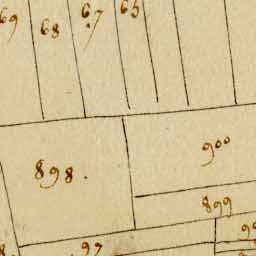 69 68 67 65
900
898.
899
97